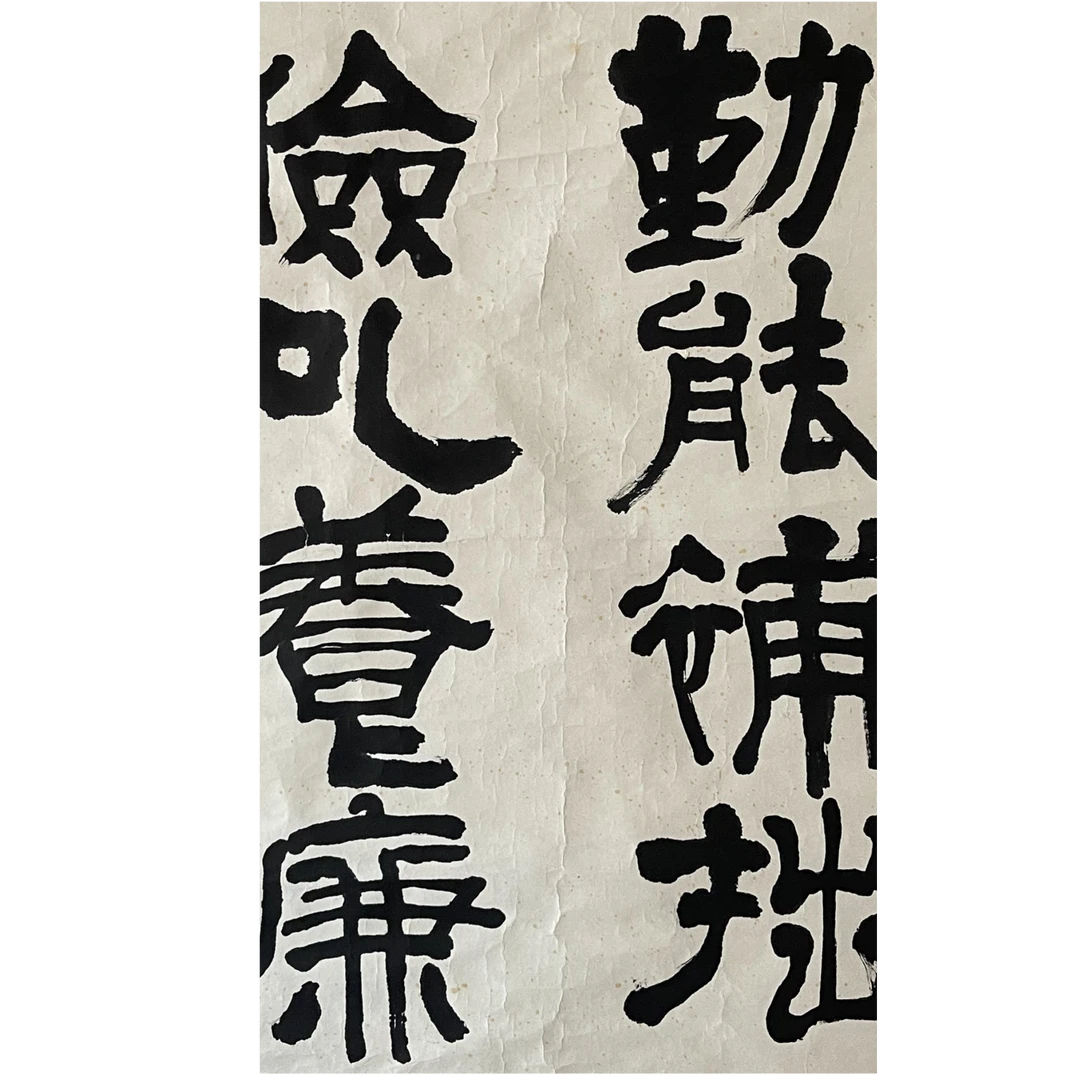 勤能補拙
儉以養廉